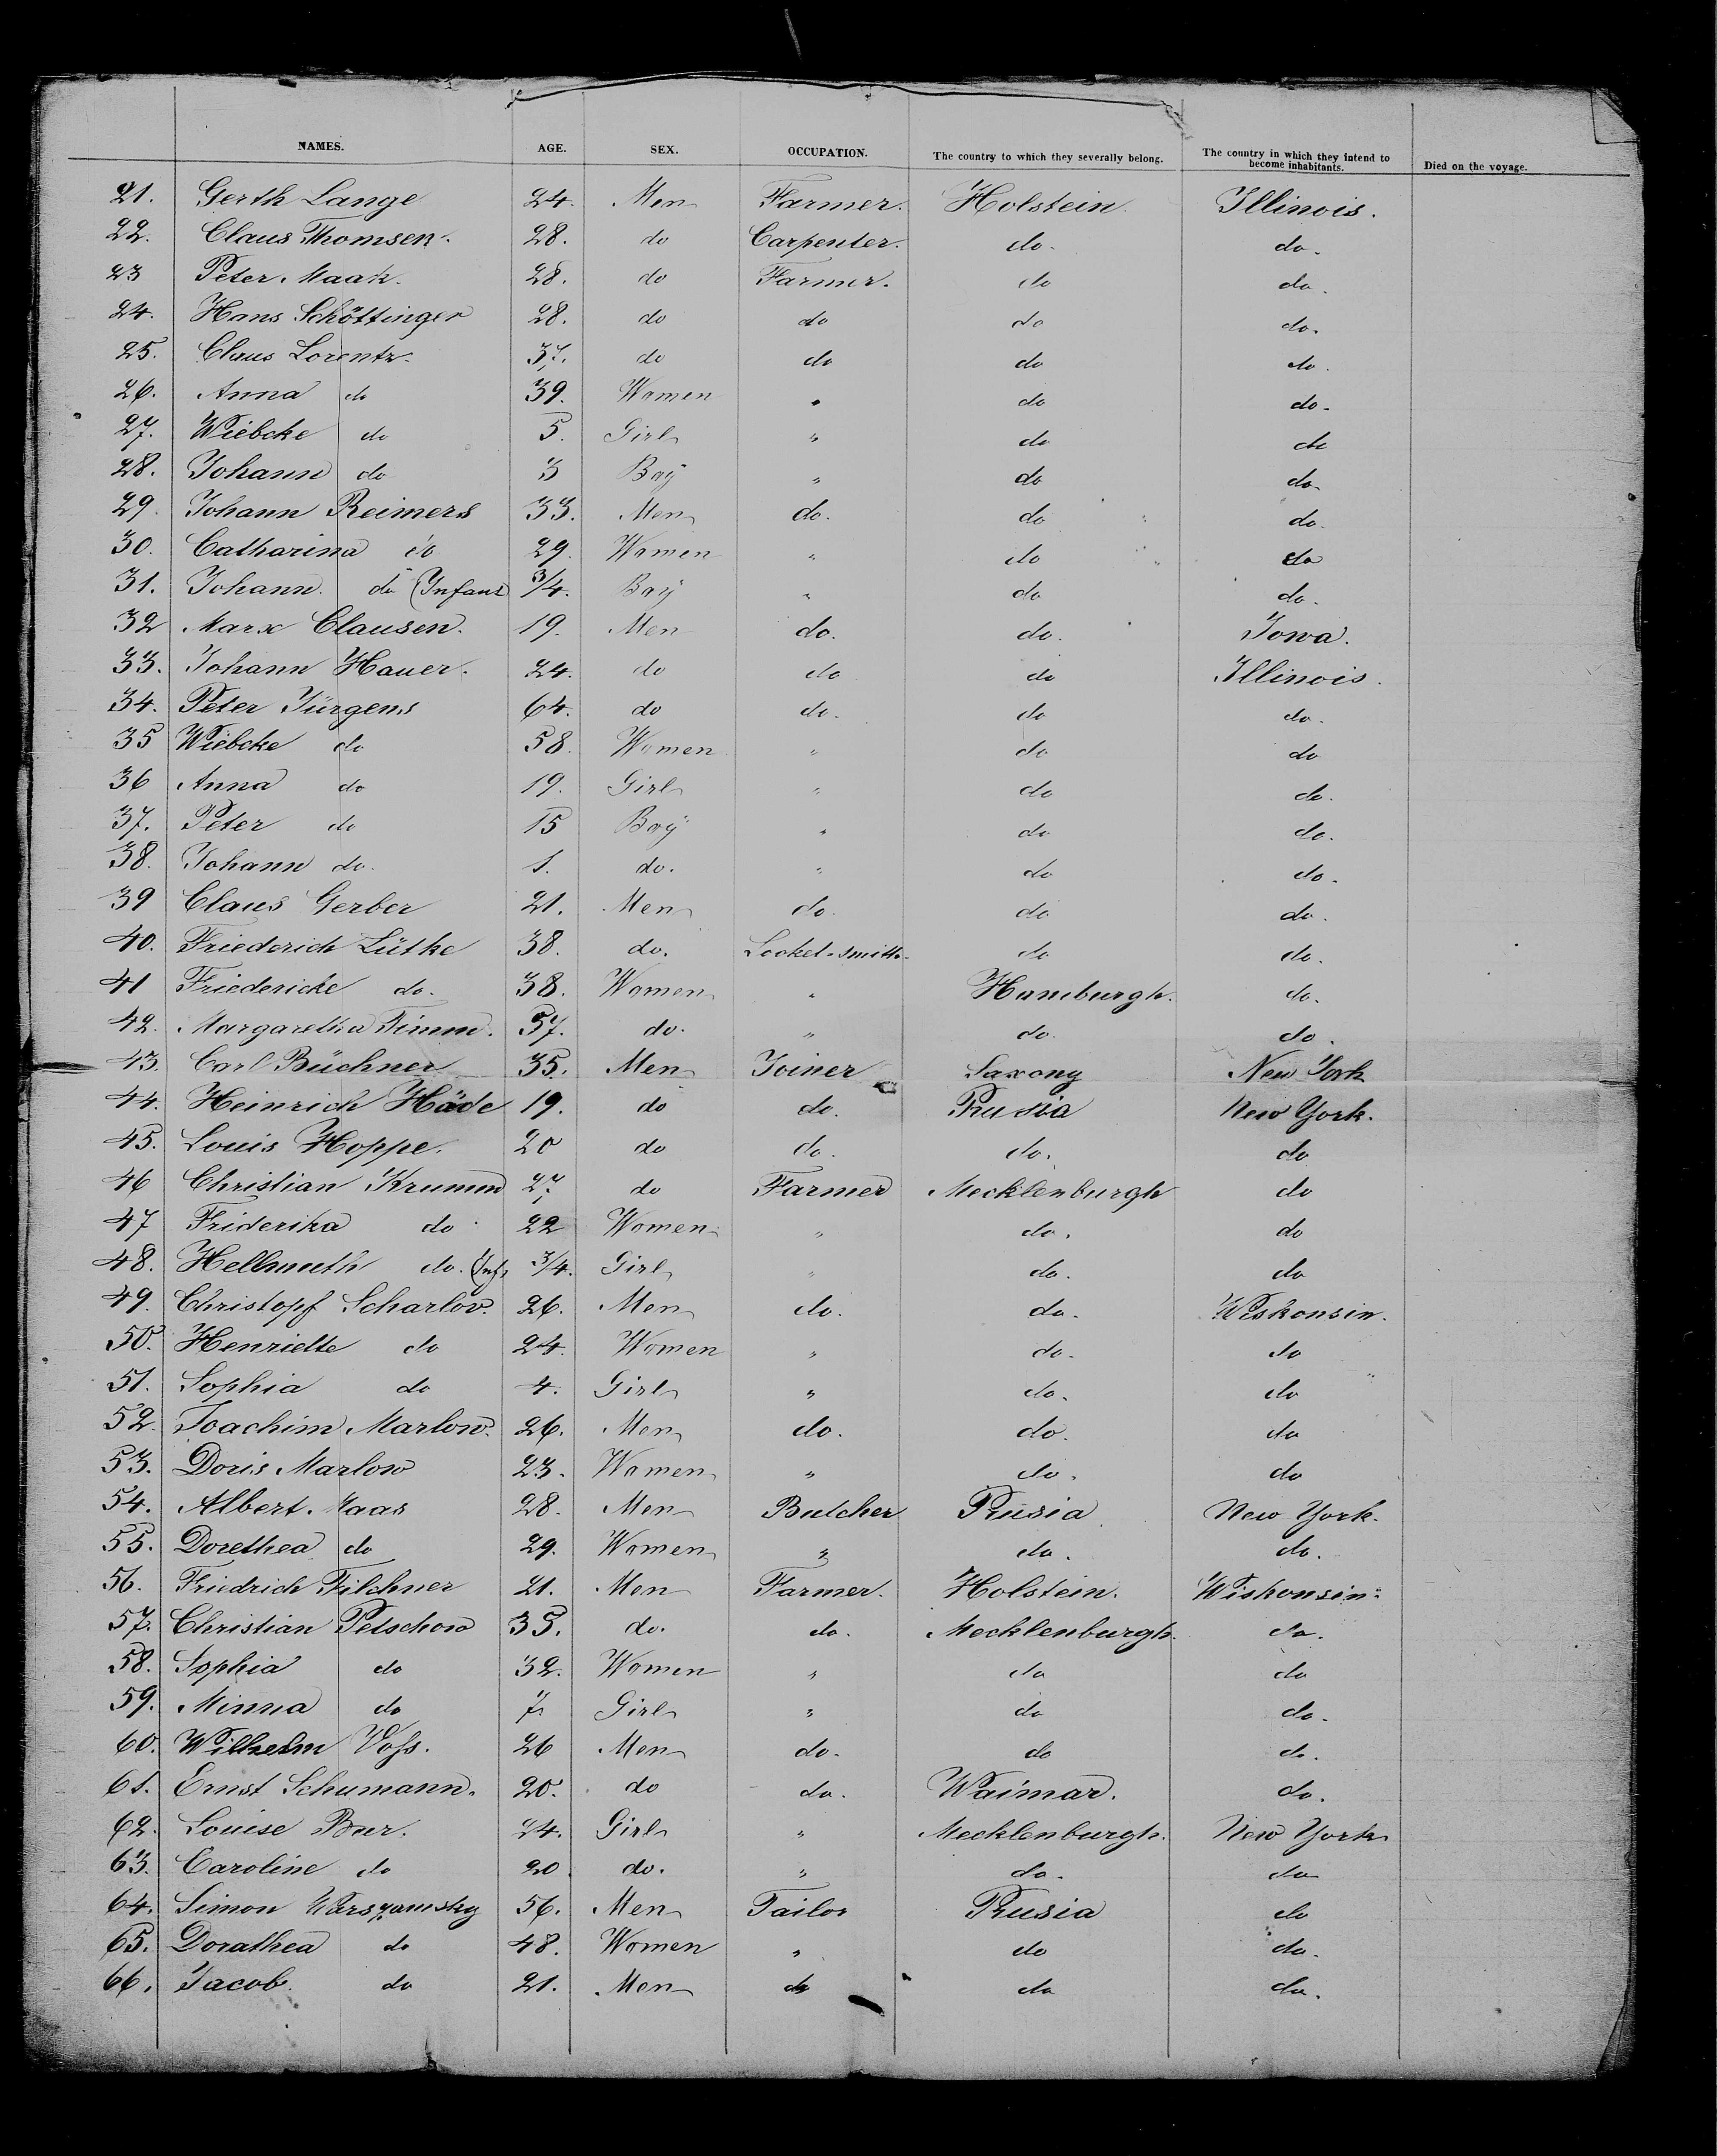 NAMES. AGE. SEX. OCCUPATION. The country to which they severally belong. The country in which they intend to become inhabitants. Died on the voyage.
21. Gerth Lange 24. Men Farmer. Holstein. Illinois.
22. Claus Thomsen. 28. do Carpenter. do. do.
23 Peter Maak. 28. do Farmer. do do.
24. Hans Schöttinger 28. do do do do.
25. Claus Lorentz. 37. do do do do.
26. Anna do 39. Women " do do.
27. Wiebcke do 5. Girl " do do
28. Johann do 3 Boy " do do.
29. Johann Reimers 33. Men do. do do.
30. Catharina do 29. Women " do do
31. Johann. do (Infant) 3/4. Boy " do do.
32 Marx Clausen. 19. Men do. do. Iowa.
33. Johann Hauer. 24. do do do Illinois.
34. Peter Jürgens 64. do do. do do.
35 Wiebcke do 58. Women " do do
36 Anna do 19. Girl " do do.
37. Peter do 15 Boy " do do.
38. Johann do. 1. do. " do do.
39 Claus Gerber 21. Men do. do do.
40. Friederich Lütke 38. do. Locket-smith. do do.
41 Friedericke do. 38. Women " Hamburgh. do.
42. Margaretha Timm. 57. do. " do. do.
43. Carl Büchner 35. Men Joiner Saxony New York
44. Heinrich Häde 19. do do. Prusia New York.
45. Louis Hoppe. 20 do do. do. do
46 Christian Krumm 27. do Farmer Mecklenburgh do
47 Friderika do 22 Women " do. do
48. Hellmuth do. (Inf) 3/4. Girl " do. do
49. Christopf Scharlov. 26. Men do. do. Wiskonsin.
50. Henriette do 24. Women " do. do
51. Sophia do 4. Girl " do. do
52. Joachim Marlow. 26. Men do. do. do
53. Doris Marlow 23. Women " do. do
54. Albert Maas 28. Men Butcher Prusia New York.
55. Dorethea do 29. Women " do. do.
56. Friedrich Filchner 21. Men Farmer. Holstein. Wiskonsin.
57. Christian Petschow 35. do. do. Mecklenburgh. do.
58. Sophia do 32. Women " do do
59. Minna do 7. Girl " do do.
60. Wilhelm Voss. 26 Men do. do do.
61. Ernst Schumann. 20. do do. Waimar. do.
62. Louise 24. Girl " Mecklenburgh. New York
63. Caroline do 20 do. " do. do
64. Simon 56. Men Tailor Prusia do
65. Dorathea do 48. Women " do do.
66. Jacob. do 21. Men do do do.